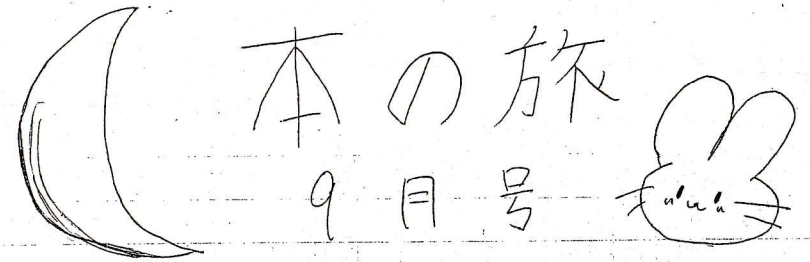 本の旅
9月号